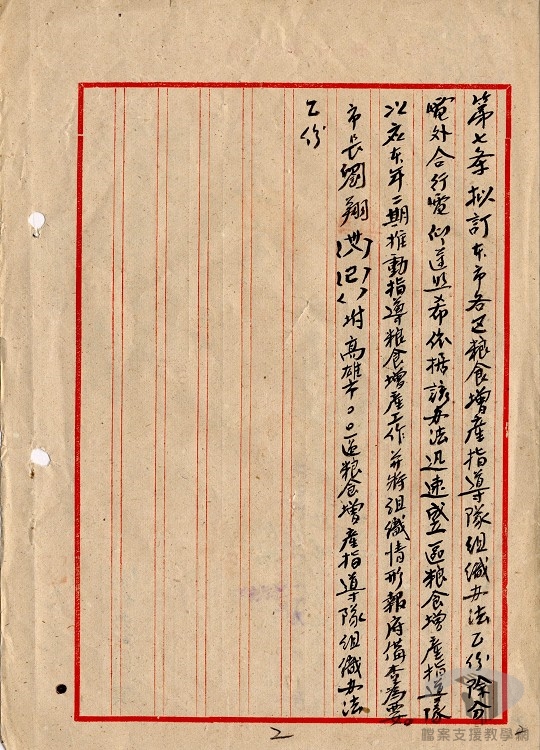 第七条拟訂本市各区粮食增產指導隊组織办法乙份除分
電外合行電仰遵照希依据該办法迅速成立区粮食增產指導隊
以应本年二期推動指導粮食增產工作并將组織情形報府備查為要
市長劉翔 附高雄市〇〇區粮食增產指導隊组織办法
乙份
2
檔案支援教學網